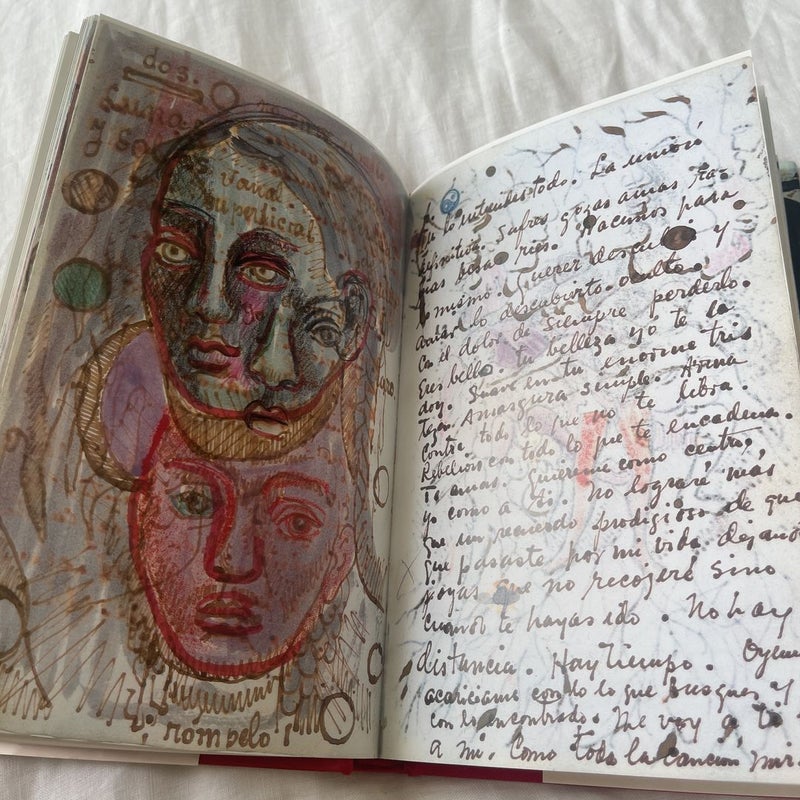 dos.
Luna
ó so
vana
superficial
¡rompelo!
todo. La unión
Sufres gozas amas ra-
bias besas ries. Nacemos para
lo mismo. Querer descubrir y
amar lo descubierto. oculto.
Con el dolor de siempre perderlo.
Eres bello. tu belleza yo te la
doy. Suave en tu enorme tris
teza. Amargura simple. Arma
contra todo lo que no te libra.
Rebelión con todo lo que te encadena.
Te amas. Quiereme como centro,
yo como a ti. No lograré más
que un recuerdo prodigioso de que
que pasaste por mi vida dejando
joyas que no recojeré sino
cuando te hayas ido. No hay
distancia. Hay tiempo. Oyeme
acariciame con lo que busques y
con lo encontrado. Me voy a ti
a mi. Como toda la cancion mira